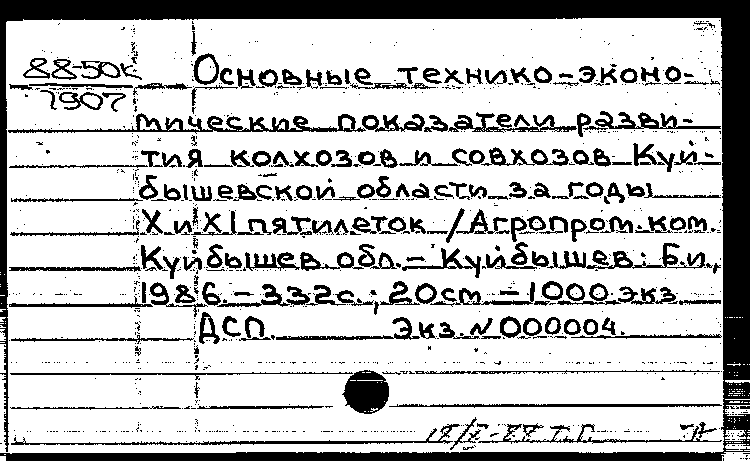 88-50к Основные технико-эконо-
1907
мические показатели разви-
тия колхозов и совхозов Куй-
бышевской области за годы
X и XI пятилеток / Агропром. ком.
Куйбышев. обл. - Куйбышев: Б.и.,
1986. - 332с.; 20см - 1000 экз
ДСП. Экз. N 000004.